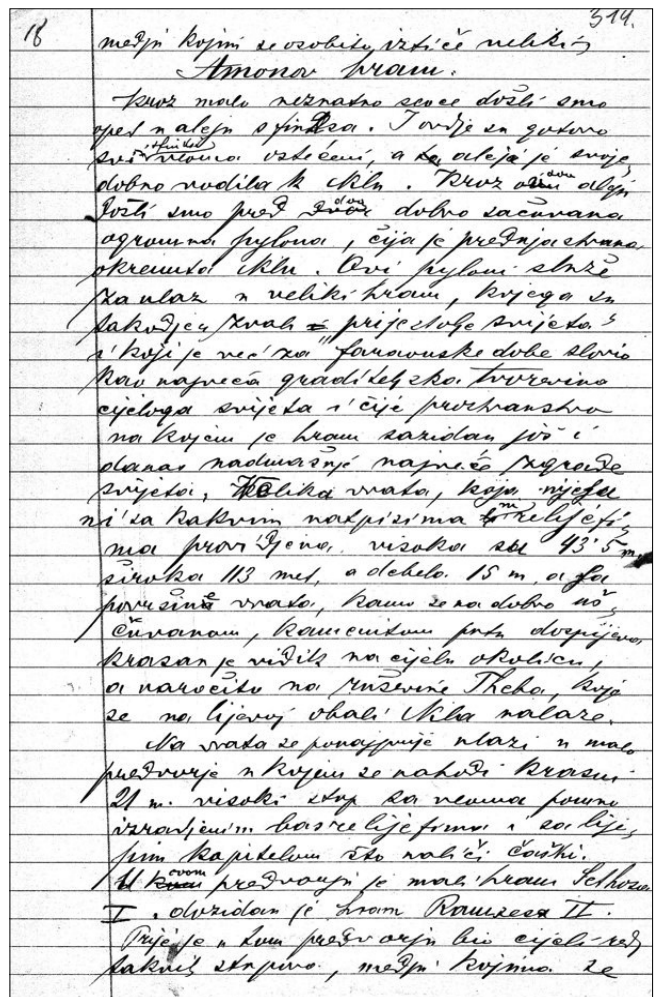 18
314.
medju kojini se osobito iztiče veliki
Amonov hram.
Kroz malo neznatno seoce došli smo
opet u aleju sfinksa. I ovdje su gotovo
svi sfinksi veoma oštećeni, a ta aleja je svoje,
dobno vodila k Nilu. Kroz ovu aleju
došli smo pred dva dobro sačuvana
ogromna pylona, čija je prednja strana
okrenuta Nilu. Ovi pyloni služe
za ulaz u veliki hram, kojega su
takodjer zvali "prijestolje svijeta"
i koji je već za faraonske dobe slovio
kao najveća graditeljska tvorevina
cijeloga svijeta i čije prostranstvo
na kojem je hram sazidan još i
danas nadmašuje najveće zgrade
svijeta. Velika vrata, koja nijesu
ni sa kakvim natpisima ni relijefi,
ma providjena visoka su 43·5 m,
široka 113 met, a debela 15 m, a sa
površine vrata, kamo se na dobro
čuvanom, kamenitom putu dospijeva
krasan je vidik na cijelu okolicu,
a naročito na ruševine Theba, koje
se na lijevoj obali Nila nalaze.
Na vrata se ponajprije ulazi u malo
predvorje u kojem se nahodi krasni
21 m. visoki stup sa veoma pomno
izradjenim basrelijefima i sa lije,
pim kapitelom što naliči čaški.
U ovom predvorju je mali hram Sethosa
I. dozidan je hram Ramzesa II.
Prije je u tom predvorju bio cijeli red
takvih stupova, medju kojima se